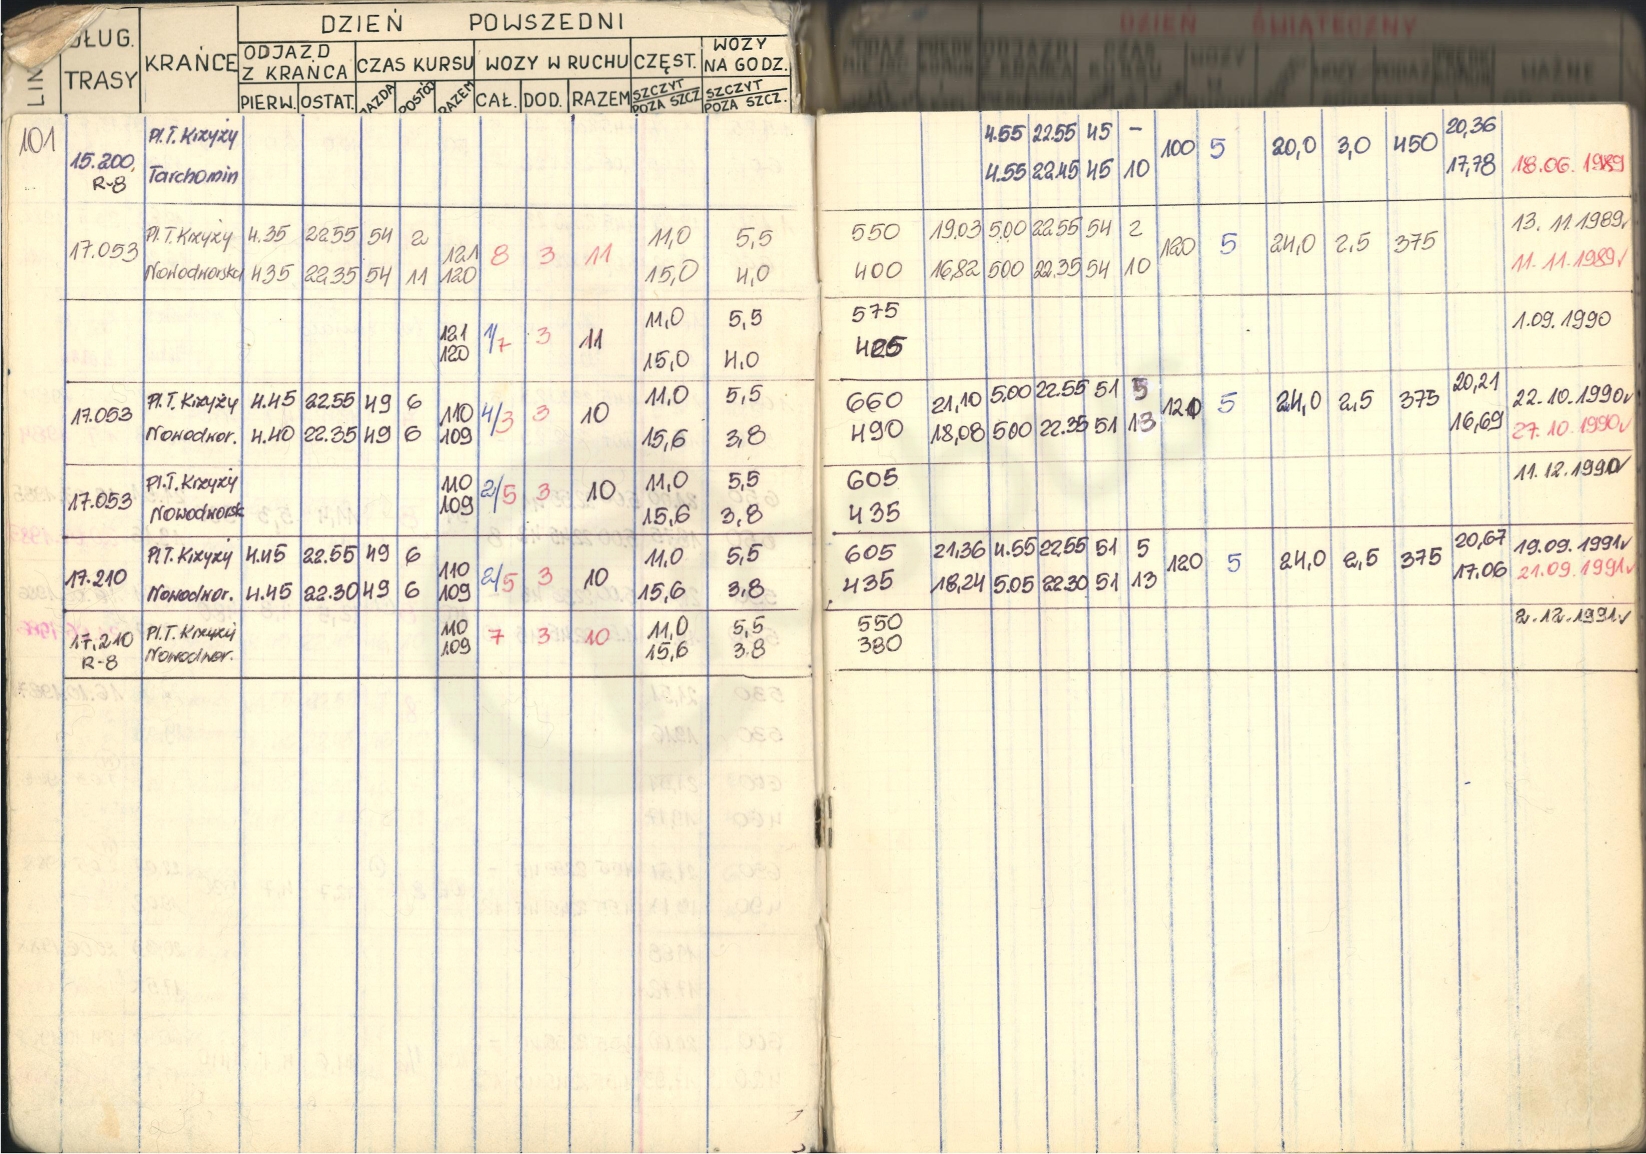 DZIEŃ POWSZEDNI
DŁUG. TRASY KRAŃCE ODJAZD Z KRAŃCA CZAS KURSU WOZY W RUCHU CZĘST. WOZY NA GODZ.
LIN PIERW. OSTAT. JAZDA POSTÓJ RAZEM CAŁ. DOD. RAZEM SZCZYT POZA SZCZ. SZCZYT POZA SZCZ.
DZIEŃ ŚWIĄTECZNY
101 Pl.T. Krzyży 4.55 22.55 45 - 20,36
15.200, 100 5 20,0 3,0 450
R-8 Tarchomin 4.55 22.45 45 10 17,78 18.06. 1989
Pl.T. Krzyży 4.35 22.55 54 2 11,0 5,5 550 19.03 5.00 22.55 54 2 13. 11. 1989
17.053 121 8 3 11 120 5 24,0 2,5 375
Nowodworska 4.35 22.35 54 11 120 15,0 4,0 400 16,82 500 22.35 54 10 11. 11. 1989
11,0 5,5 575
121 1/7 3 11 1.09. 1990
120 15,0 4.0 425
Pl.T. Krzyży 4.45 22.55 49 6 11,0 5,5 660 21,10 5.00 22.55 51 5 20,21 22. 10. 1990
17.053 110 4/3 3 10 120 5 24,0 2,5 375
Nowodwor. 4.40 22.35 49 6 109 15,6 3,8 490 18,08 500 22.35 51 13 16,69 27. 10. 1990
Pl.T. Krzyży 110 11,0 5,5 605 11. 12. 1990
17.053 2/5 3 10
Nowodworsk 109 15,6 3,8 435
Pl.T. Krzyży 4.45 22.55 49 6 11,0 5,5 605 21,36 4.55 22.55 51 5 20,67 19.09. 1991
17.210 110 2/5 3 10 120 5 24,0 2,5 375
Nowodwor. 4.45 22.30 49 6 109 15,6 3,8 435 18,24 5.05 22.30 51 13 17.06 21.09. 1991
17,210 Pl.T. Krzyży 110 7 3 10 11,0 5,5 550 2. 12. 1991
R-8 Nowodwor. 109 15,6 3.8 380